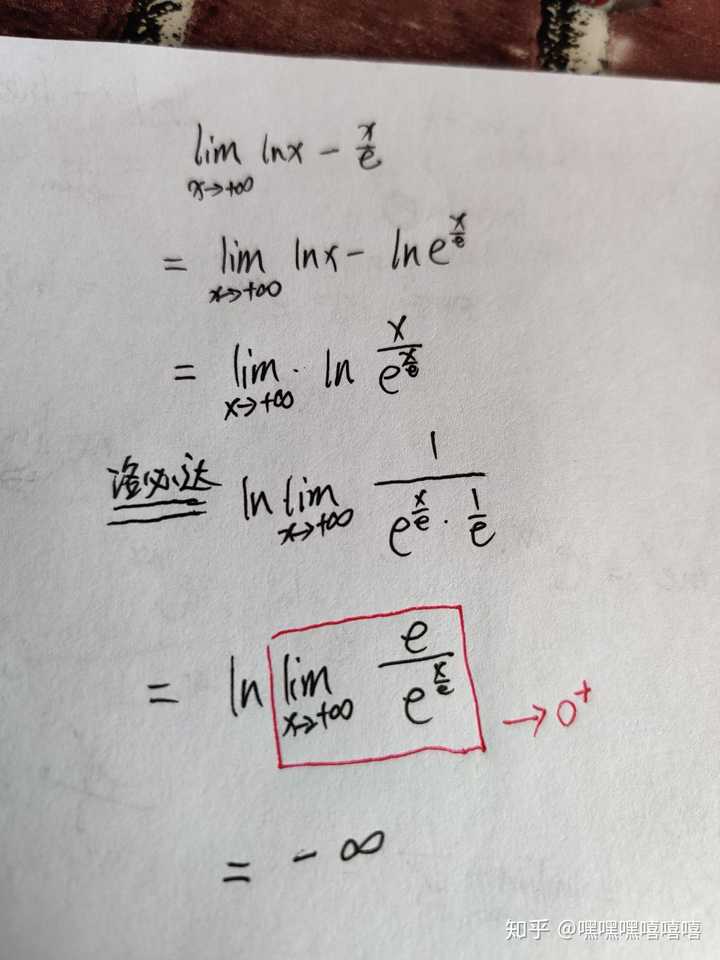 lim lnx - x/e
x→+∞
= lim lnx - lne^(x/e)
x→+∞
= lim · ln x/e^(x/e)
x→+∞
洛必达 ln lim 1/(e^(x/e) · 1/e)
x→+∞
= ln lim e/e^(x/e) → 0⁺
x→+∞
= - ∞
知乎 @嘿嘿嘿嘻嘻嘻